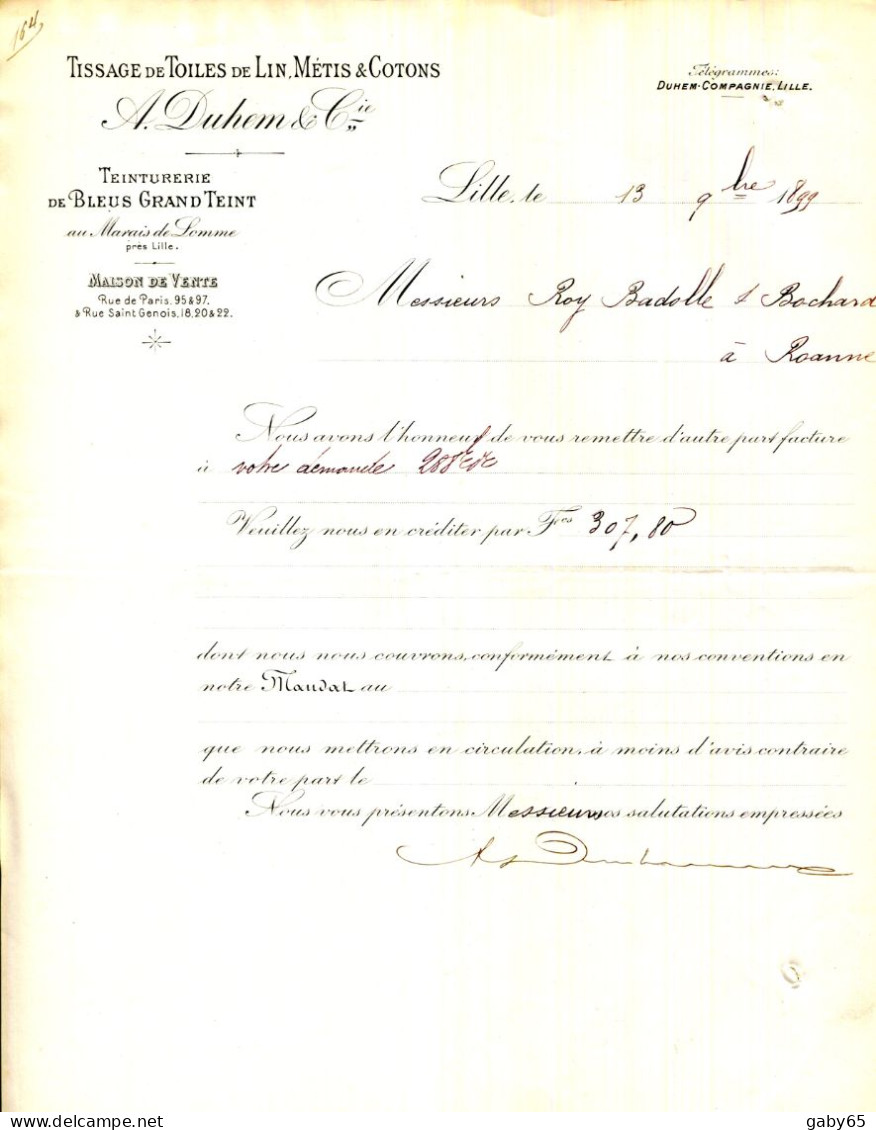 164
TISSAGE DE TOILES DE LIN, MÉTIS & COTONS
Télégrammes:
DUHEM-COMPAGNIE, LILLE.
A. Duhem & Cie
TEINTURERIE
DE BLEUS GRAND TEINT
au Marais de Lomme
près Lille.
MAISON DE VENTE
Rue de Paris, 95 & 97.
& Rue Saint Genois, 18, 20 & 22.
Lille, le 13 9bre 1899
Messieurs Roy Badolle & Bochard
à Roanne
Nous avons l'honneur de vous remettre d'autre part facture
à votre demande
Veuillez nous en créditer par Fcs 307,80
dont nous nous couvrons, conformément à nos conventions en
notre Mandat au
que nous mettrons en circulation, à moins d'avis contraire
de votre part le
Nous vous présentons Messieurs nos salutations empressées
gaby65